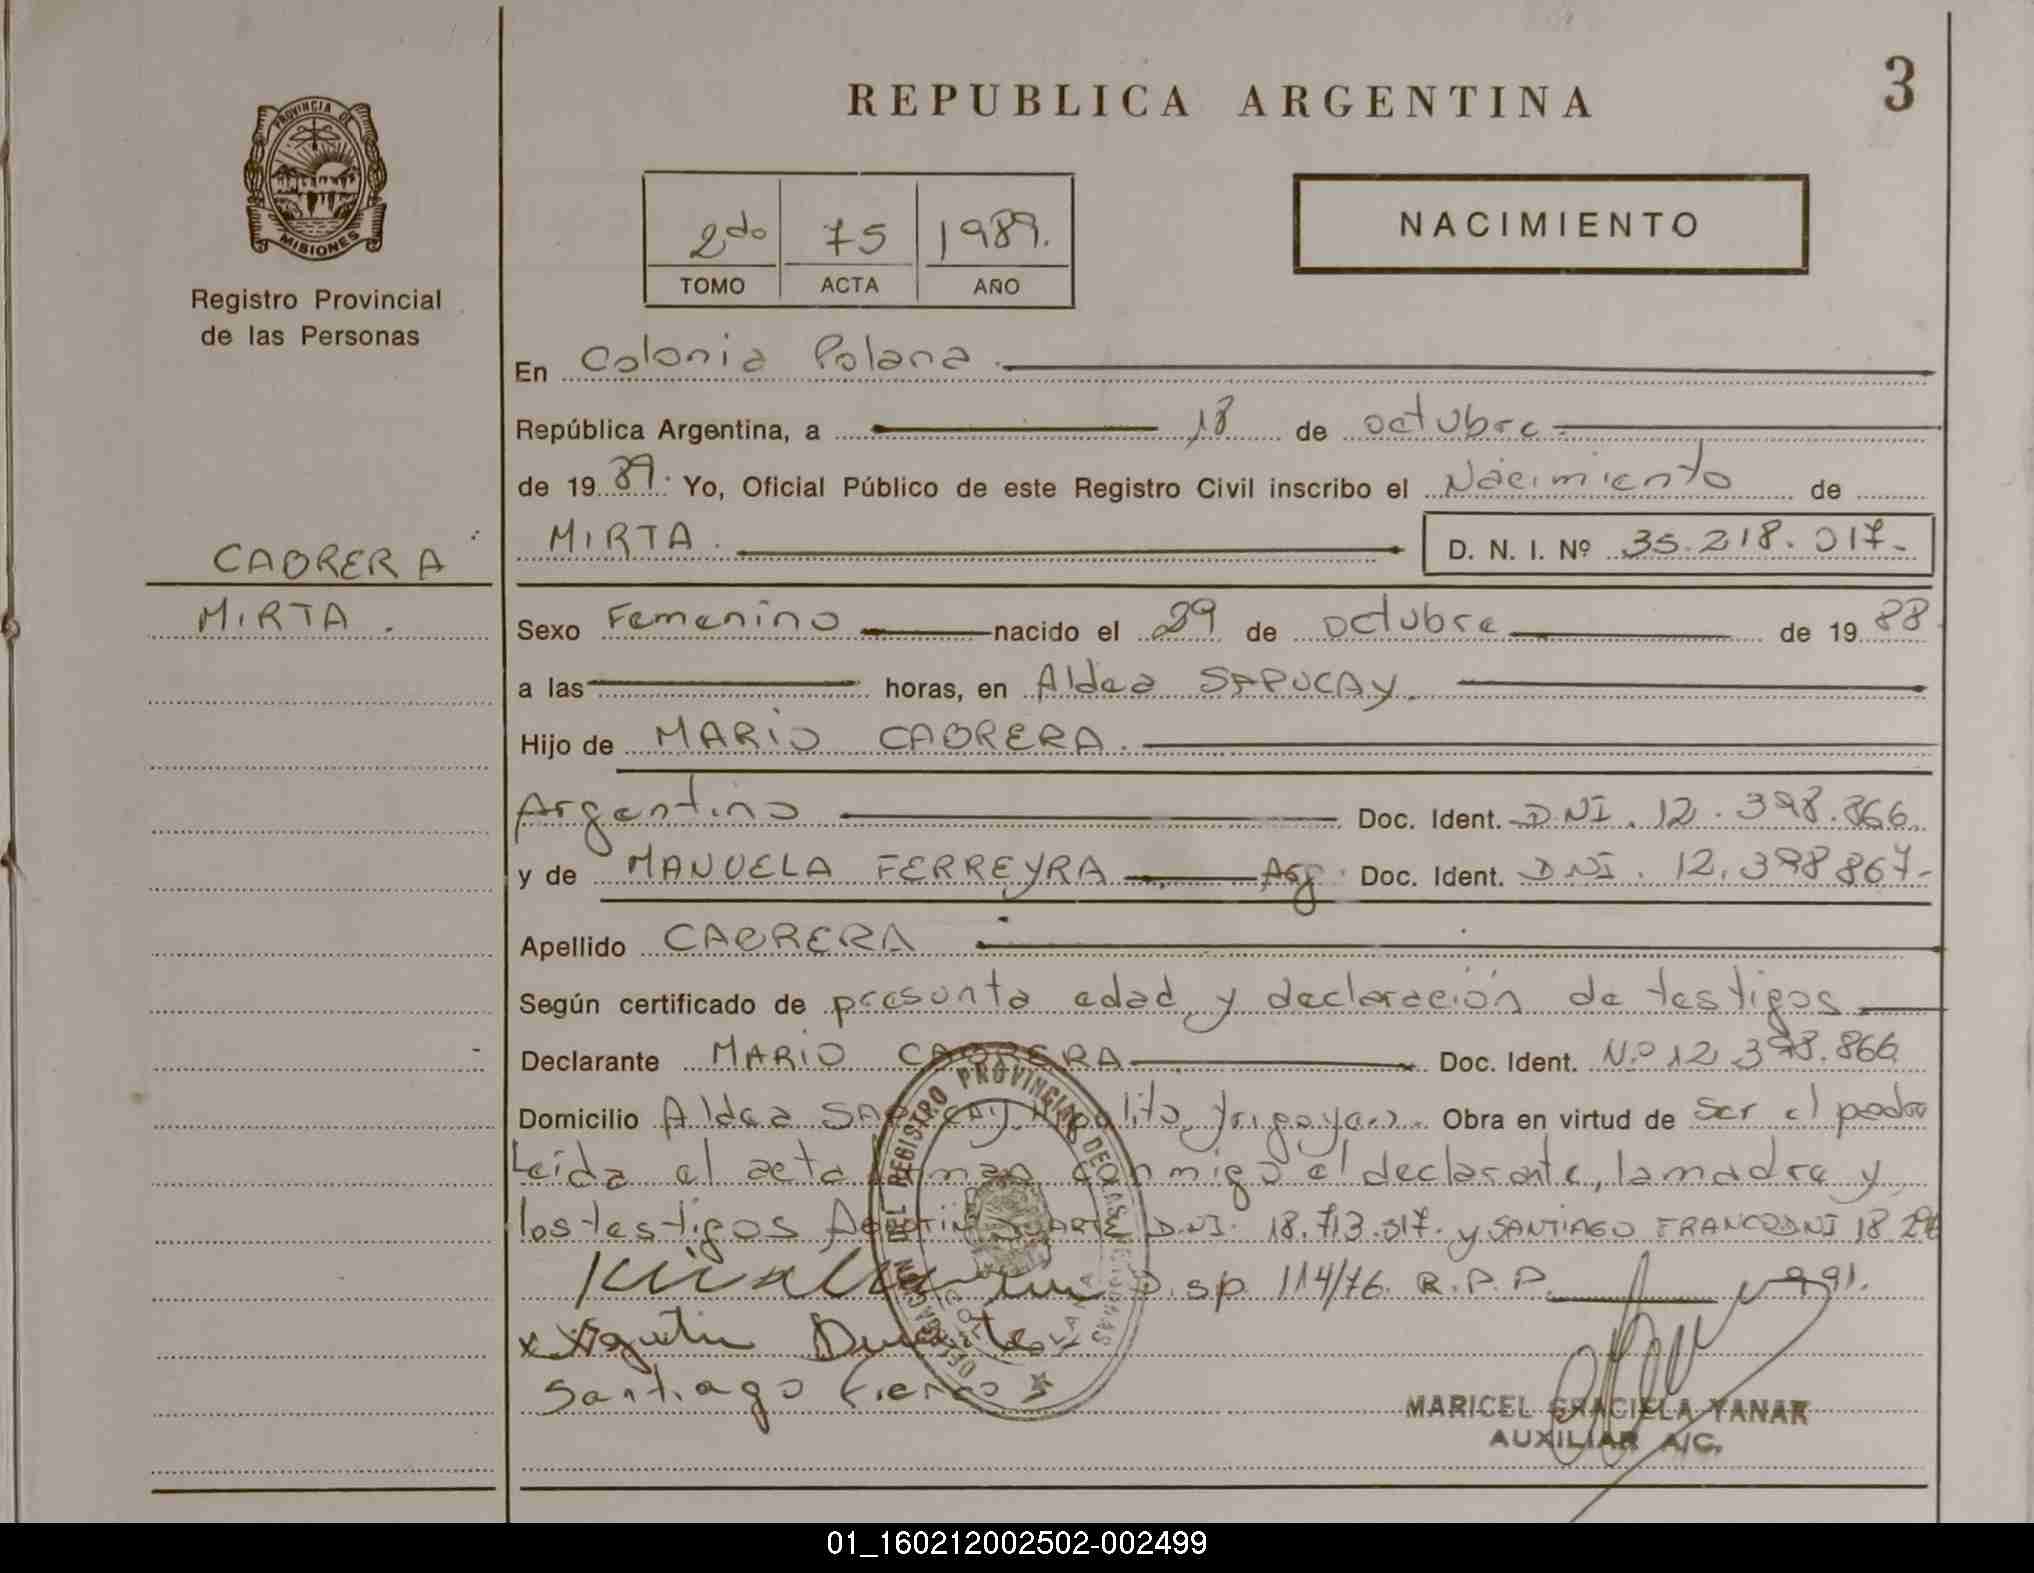 REPUBLICA ARGENTINA
3
PROVINCIA DE
MISIONES
Registro Provincial
de las Personas
2do 75 1989.
TOMO ACTA AÑO
NACIMIENTO
En Colonia Polana.
República Argentina, a 18 de octubre
de 1989. Yo, Oficial Público de este Registro Civil inscribo el Nacimiento de
MIRTA. D. N. I. Nº 35.218.017-
CABRERA
MIRTA.
Sexo Femenino nacido el 29 de octubre de 1988
a las horas, en Aldea SAPUCAY.
Hijo de MARIO CABRERA.
Argentino Doc. Ident. DNI. 12.398.866.
y de MANUELA FERREYRA Arg. Doc. Ident. DNI. 12.398867-
Apellido CABRERA
Según certificado de presunta edad y declaración de testigos
Declarante MARIO CABRERA Doc. Ident. Nº 12 398.866
Domicilio Aldea SAPUCAY, Hipolito Yrigoyen. Obra en virtud de ser el padre
Leida el acta firman conmigo el declarante, la madre y
los testigos AGUSTIN DUARTE DNI. 18.713.017. y SANTIAGO FRANCO DNI 18
Disp. 114/76. R.P.P.
x Agustin Duarte
Santiago Franco
DELEGACION DEL REGISTRO PROVINCIAL DE LAS PERSONAS
COLONIA POLANA
MISIONES
MARICEL GRACIELA YANAK
AUXILIAR A/C.
01_160212002502-002499